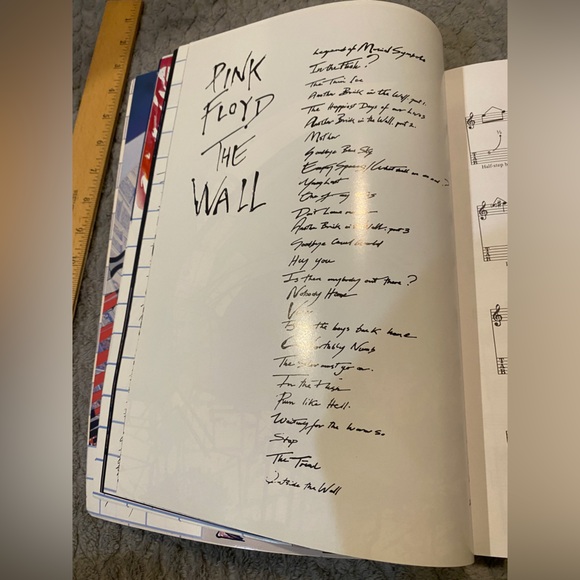 PINK
FLOYD
THE
WALL
Legend of Music Symbols
In the Flesh?
The Thin Ice
Another Brick in the Wall, part 1
The Happiest Days of our lives
Another Brick in the Wall, part 2
Mother
Goodbye Blue Sky
Empty Spaces / What shall we do now?
Young Lust
One of my
Don't leave me
Another Brick in the Wall, part 3
Goodbye Cruel World
Hey you
Is there anybody out there?
Nobody Home
the boys back home
Comfortably Numb
The Show must go on
In the Flesh
Run like Hell
Waiting for the worms
Stop
The Trial
Outside the Wall
½